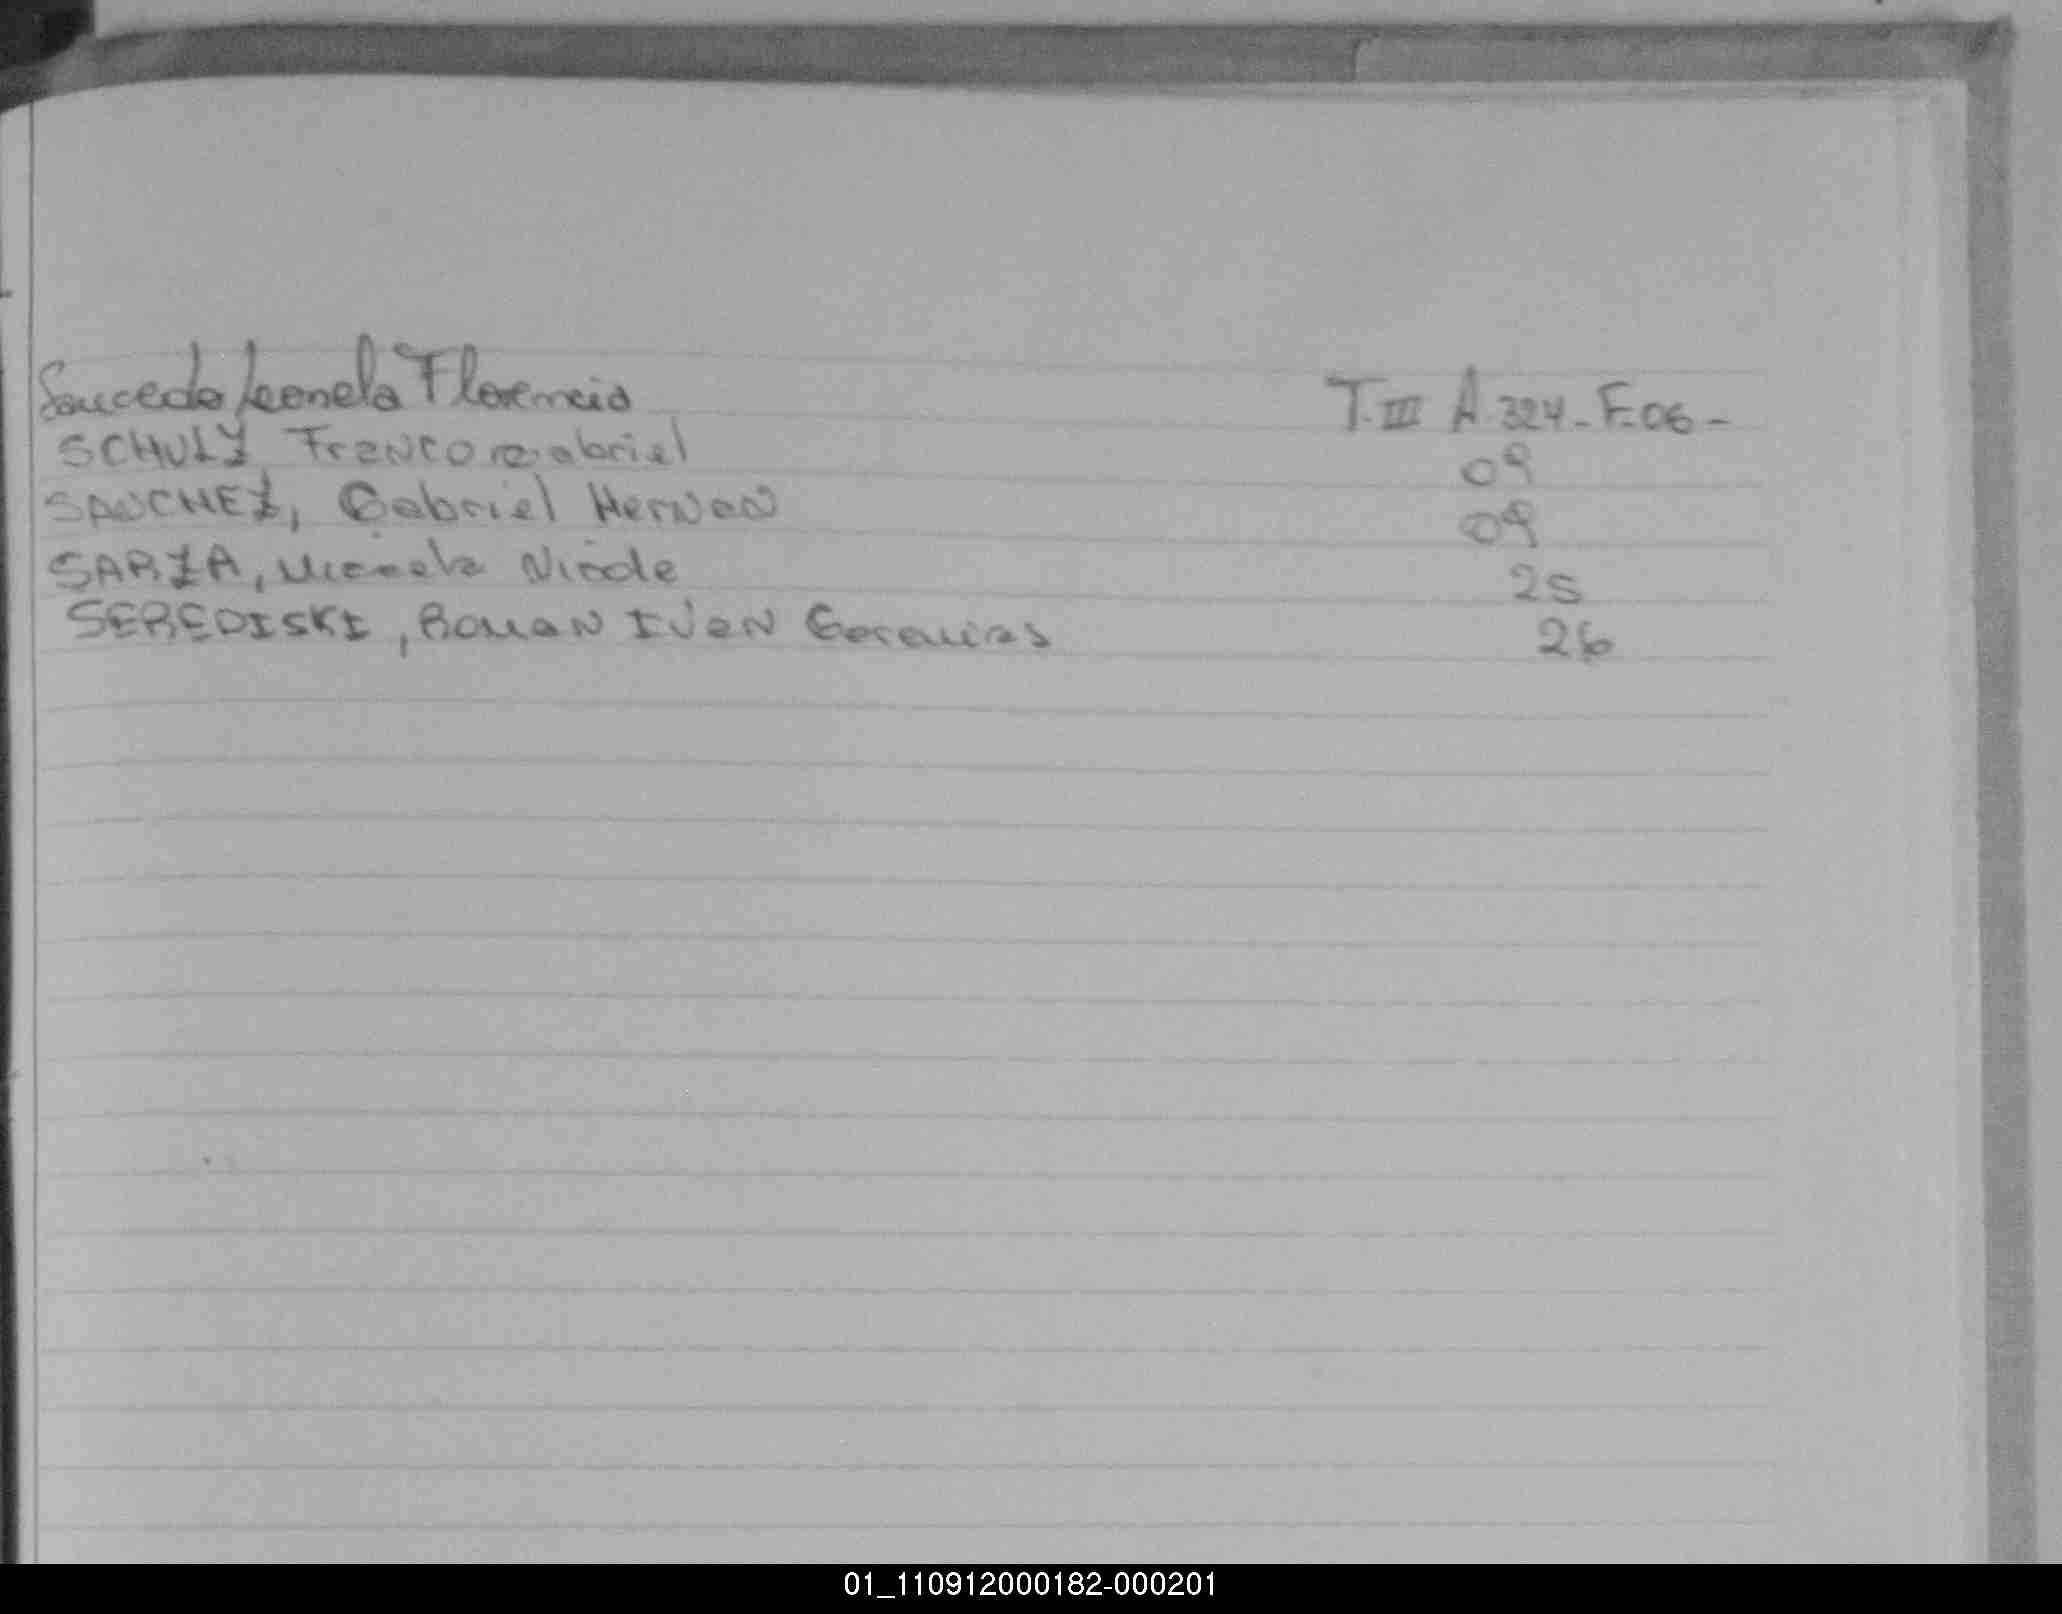 Saucedo Leonela Florencia T. III A. 324 - F. 06 -
SCHULZ Franco Gabriel 09
SANCHEZ, Gabriel Hernan 09
SARZA, Micaela Nicole 25
SEREDISKI, Roman Ivan 26
01_110912000182-000201